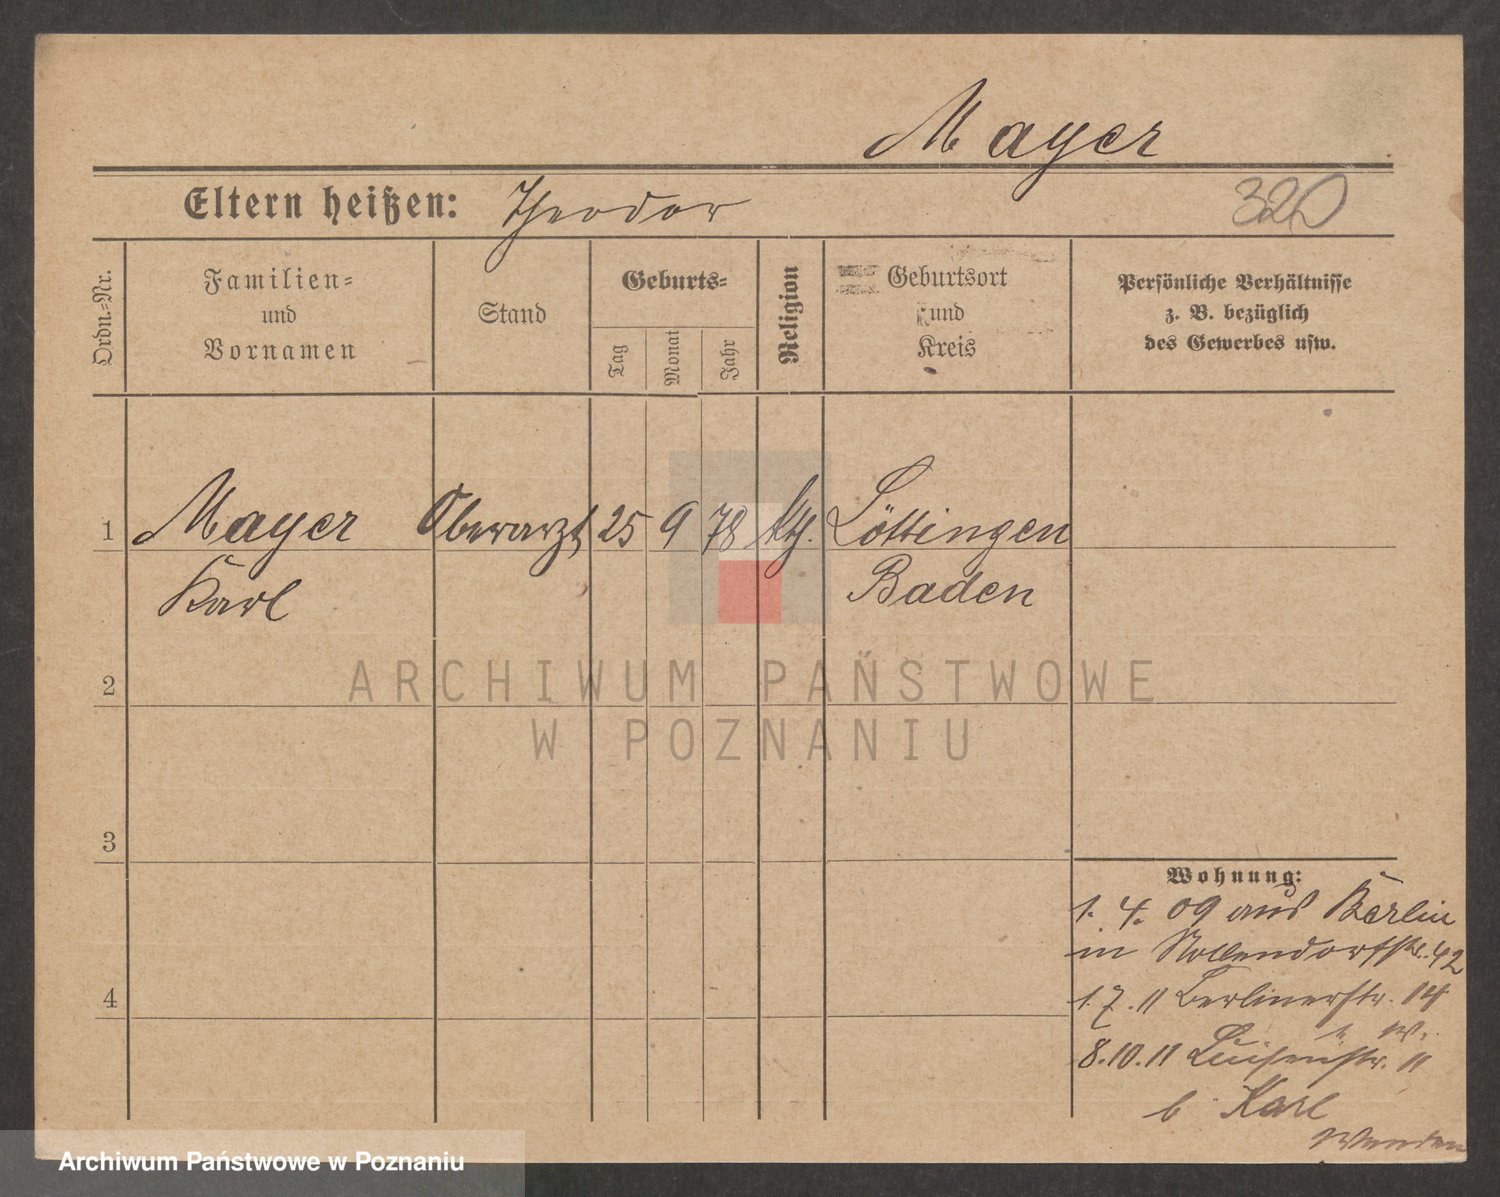 Mayer
Eltern heißen: Theodor
320
Ordn.-Nr.
Familien-
und
Vornamen
Stand
Geburts-
Tag
Monat
Jahr
Religion
Geburtsort
und
Kreis
Persönliche Verhältnisse
z. B. bezüglich
des Gewerbes usw.
1 Mayer Oberarzt 25 9 78 kth. Löttingen
Karl Baden
2
3
4
Wohnung:
1. 4. 09 aus Berlin
in Nollendorfstr. 42
1. 7. 11 Berlinerstr. 14
8. 10. 11 Luisenstr. 11
b Karl
ARCHIWUM PAŃSTWOWE
W POZNANIU
Archiwum Państwowe w Poznaniu